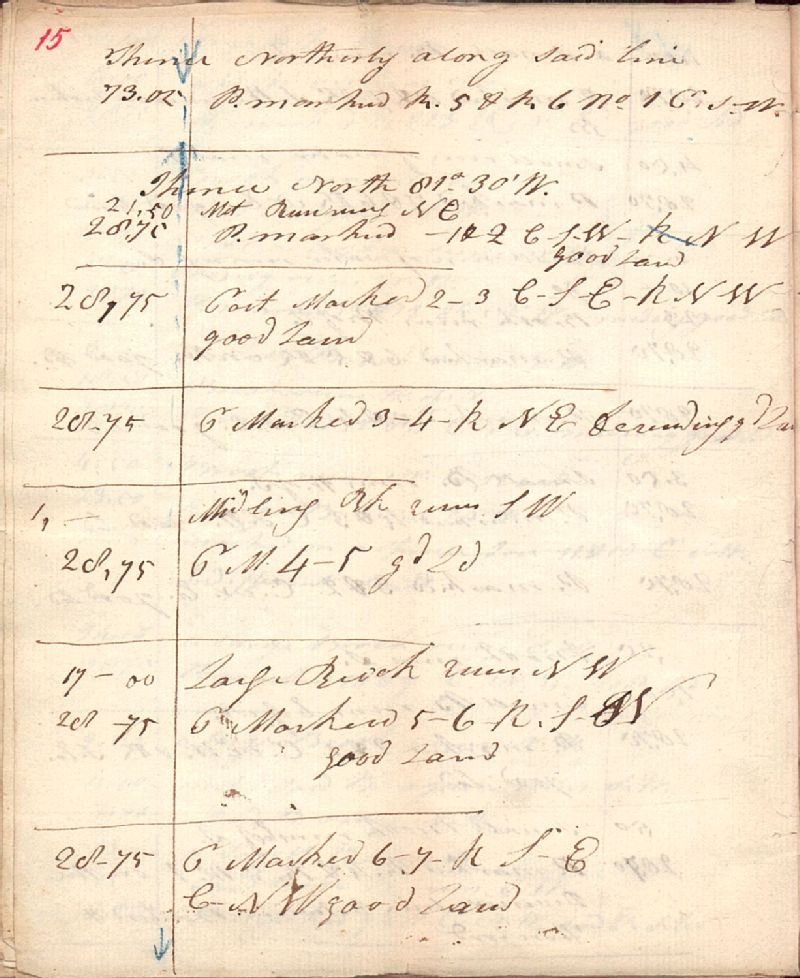 15
Thence Northerly along said line
73.05 P. marked R. 5 & R 6 No 1 C S-W.
Thence North 81° 30' W.
21,50 Mt Running NE
28.75 P. marked - 1 & 2 C S-W - R N W
good Land
28,75 Post Marked 2-3 C-S-E-R N W -
good Land
28-75 P Marked 3-4-R N E gd
1, - Midling Bk runs S W
28,75 P M 4-5 gd Ld
17-00 Large Brook runs N W
28-75 P Marked 5-6-R. S-W
good Land
28-75 P Marked 6-7-R S-E
C-N W good Land